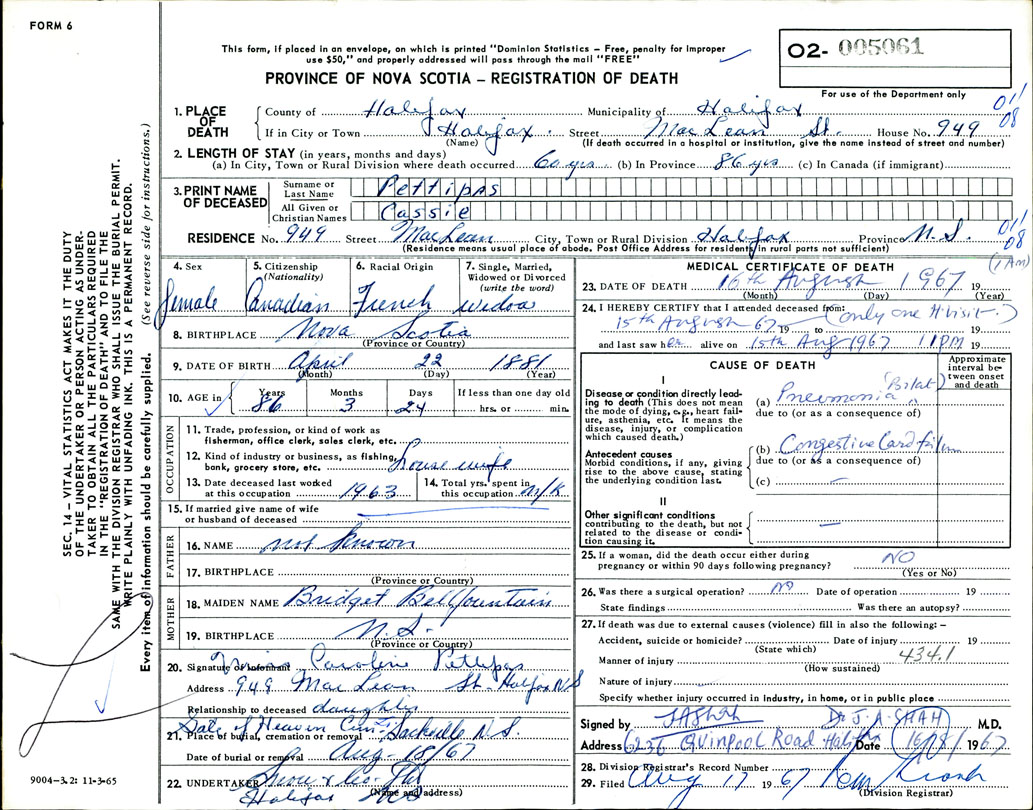 FORM 6
This form, if placed in an envelope, on which is printed "Dominion Statistics – Free, penalty for improper
use $50," and properly addressed will pass through the mail "FREE"
02- 005061
For use of the Department only
PROVINCE OF NOVA SCOTIA – REGISTRATION OF DEATH
SEC. 14 – VITAL STATISTICS ACT MAKES IT THE DUTY
OF THE UNDERTAKER OR PERSON ACTING AS UNDER-
TAKER TO OBTAIN ALL THE PARTICULARS REQUIRED
IN THE "REGISTRATION OF DEATH" AND TO FILE THE
SAME WITH THE DIVISION REGISTRAR WHO SHALL ISSUE THE BURIAL PERMIT.
WRITE PLAINLY WITH UNFADING INK. THIS IS A PERMANENT RECORD.
Every item of information should be carefully supplied. (See reverse side for instructions.)
1. PLACE OF DEATH
County of Halifax Municipality of Halifax 011/08
If in City or Town Halifax. Street MacLean St. House No. 949
(Name) (If death occurred in a hospital or institution, give the name instead of street and number)
2. LENGTH OF STAY (in years, months and days)
(a) In City, Town or Rural Division where death occurred 60 yrs (b) In Province 86 yrs (c) In Canada (if immigrant)
3. PRINT NAME OF DECEASED
Surname or Last Name Pettipas
All Given or Christian Names Cassie
RESIDENCE No. 949 Street MacLean City, Town or Rural Division Halifax Province N.S. 011/08
(Residence means usual place of abode. Post Office Address for residents in rural parts not sufficient)
4. Sex female
5. Citizenship (Nationality) Canadian
6. Racial Origin French
7. Single, Married, Widowed or Divorced (write the word) widow
8. BIRTHPLACE Nova Scotia
(Province or Country)
9. DATE OF BIRTH April 22 1881
(Month) (Day) (Year)
10. AGE in Years 86 Months 3 Days 24 If less than one day old hrs. or min.
OCCUPATION
11. Trade, profession, or kind of work as
fisherman, office clerk, sales clerk, etc.
12. Kind of industry or business, as fishing,
bank, grocery store, etc. housewife
13. Date deceased last worked at this occupation 1963
14. Total yrs. spent in this occupation n/k
15. If married give name of wife
or husband of deceased
FATHER
16. NAME not known
17. BIRTHPLACE
(Province or Country)
MOTHER
18. MAIDEN NAME Bridget Bellfountain
19. BIRTHPLACE N.S.
(Province or Country)
20. Signature of informant Caroline Pettipas
Address 949 MacLean St. Halifax NS
Relationship to deceased daughter
Gate of Heaven Cem. Sackville N.S.
21. Place of burial, cremation or removal
Date of burial or removal Aug. 18/67
22. UNDERTAKER Snow & Co. Ltd
(Name and address)
Halifax NS
9004-3.2: 11-3-65
MEDICAL CERTIFICATE OF DEATH (1 AM)
23. DATE OF DEATH 16th August 1967 19
(Month) (Day) (Year)
24. I HEREBY CERTIFY that I attended deceased from:
15th August 67 19 to (only one visit.)
and last saw her alive on 15th Aug 1967 11PM 19
CAUSE OF DEATH
Approximate interval between onset and death
I
Disease or condition directly lead-
ing to death (This does not mean
the mode of dying, e.g., heart fail-
ure, asthenia, etc. It means the
disease, injury, or complication
which caused death.)
(a) Pneumonia (Bilat)
due to (or as a consequence of)
Antecedent causes
Morbid conditions, if any, giving
rise to the above cause, stating
the underlying condition last.
(b) Congestive Card failure
due to (or as a consequence of)
(c) –
II
Other significant conditions
contributing to the death, but not
related to the disease or condi-
tion causing it.
–
25. If a woman, did the death occur either during
pregnancy or within 90 days following pregnancy? NO
(Yes or No)
26. Was there a surgical operation? NO Date of operation 19
State findings Was there an autopsy?
27. If death was due to external causes (violence) fill in also the following: –
Accident, suicide or homicide? Date of injury 19
(State which)
434.1
Manner of injury
(How sustained)
Nature of injury
Specify whether injury occurred in industry, in home, or in public place
Signed by JAShah Dr J. A. SHAH M.D.
Address 6236 Quinpool Road Halifax Date 16/8/ 1967
28. Division Registrar's Record Number
29. Filed Aug 17 1967
(Division Registrar)